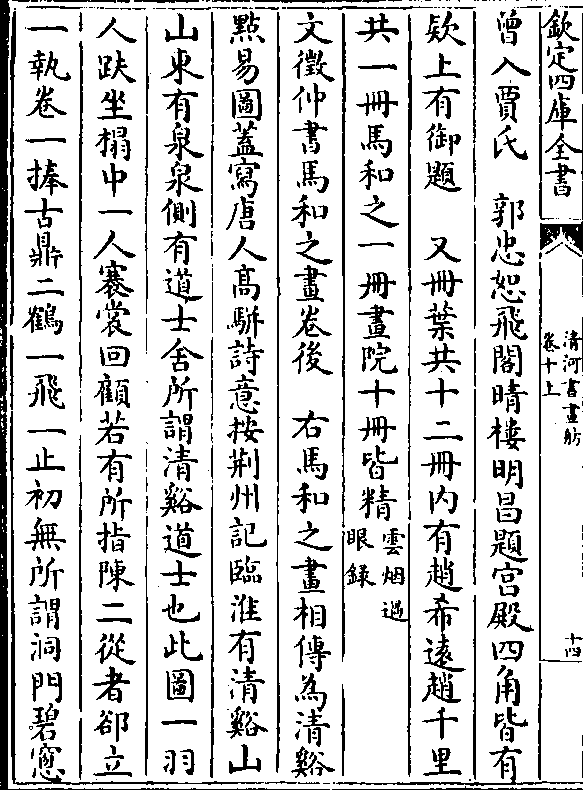 欽定四庫全書
清河書畫舫
卷十上
十四
曾入賈氏　郭忠恕飛閣晴樓明昌題宫殿四角皆有
欵上有御題　又冊葉共十二冊内有趙希逺趙千里
共一冊馬和之一冊畫院十冊皆精雲烟過眼錄
文徵仲書馬和之畫卷後　右馬和之畫相傳為清谿
㸃易圖蓋寫唐人髙駢詩意按荆州記臨淮有清谿山
山東有泉泉側有道士舍所謂清谿道士也此圖一羽
人趺坐榻中一人褰裳回顧若有所指陳二從者郤立
一執卷一捧古鼎二鶴一飛一止初無所謂洞門碧窻